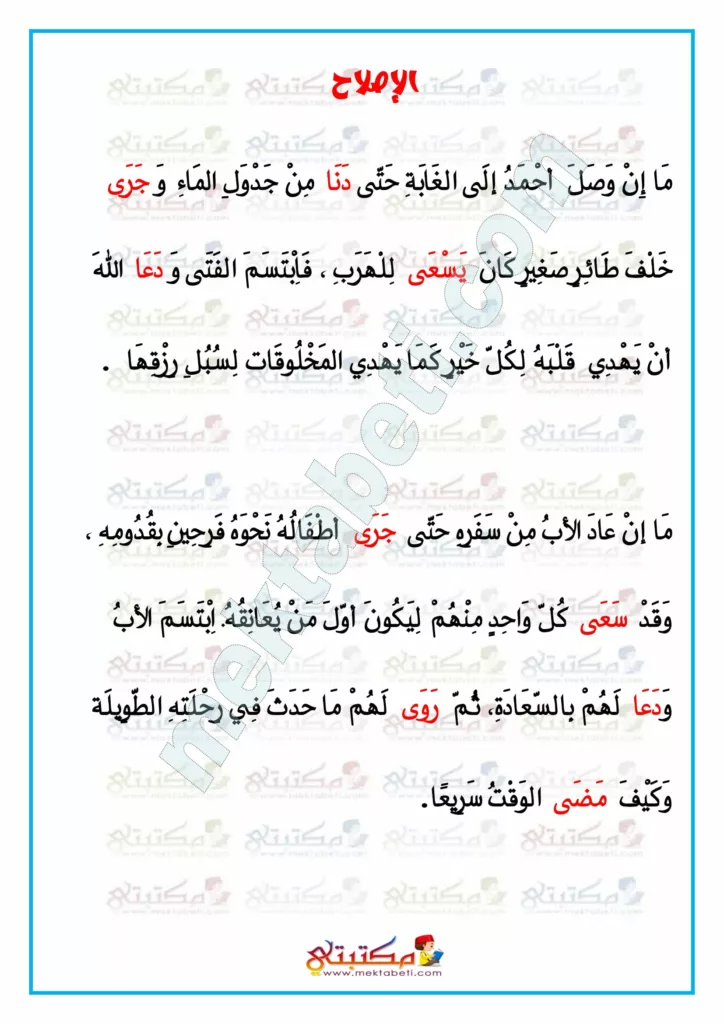 الإصلاح
مَا إِنْ وَصَلَ أَحْمَدُ إِلَى الغَابَةِ حَتَّى دَنَا مِنْ جَدْوَلِ المَاءِ وَ جَرَى
خَلْفَ طَائِرٍ صَغِيرٍ كَانَ يَسْعَى لِلْهَرَبِ ، فَاِبْتَسَمَ الفَتَى وَ دَعَا اللهَ
أَنْ يَهْدِي قَلْبَهُ لِكُلّ خَيْرٍ كَمَا يَهْدِي المَخْلُوقَات لِسُبُلِ رِزْقِهَا .
مَا إِنْ عَادَ الأَبُ مِنْ سَفَرِهِ حَتَّى جَرَى أَطْفَالُهُ نَحْوَهُ فَرِحِينِ بِقُدُومِهِ ،
وَقَدْ سَعَى كُلّ وَاحِدٍ مِنْهُمْ لِيَكُونَ أَوّلَ مَنْ يُعَانِقُهُ. اِبْتَسَمَ الأَبُ
وَدَعَا لَهُمْ بِالسّعَادَةِ، ثُمّ رَوَى لَهُمْ مَا حَدَثَ فِي رِحْلَتِهِ الطّوِيلَة
وَكَيْفَ مَضَى الوَقْتُ سَرِيعًا.
mektabeti.com
مكتبتي
www.mektabeti.com